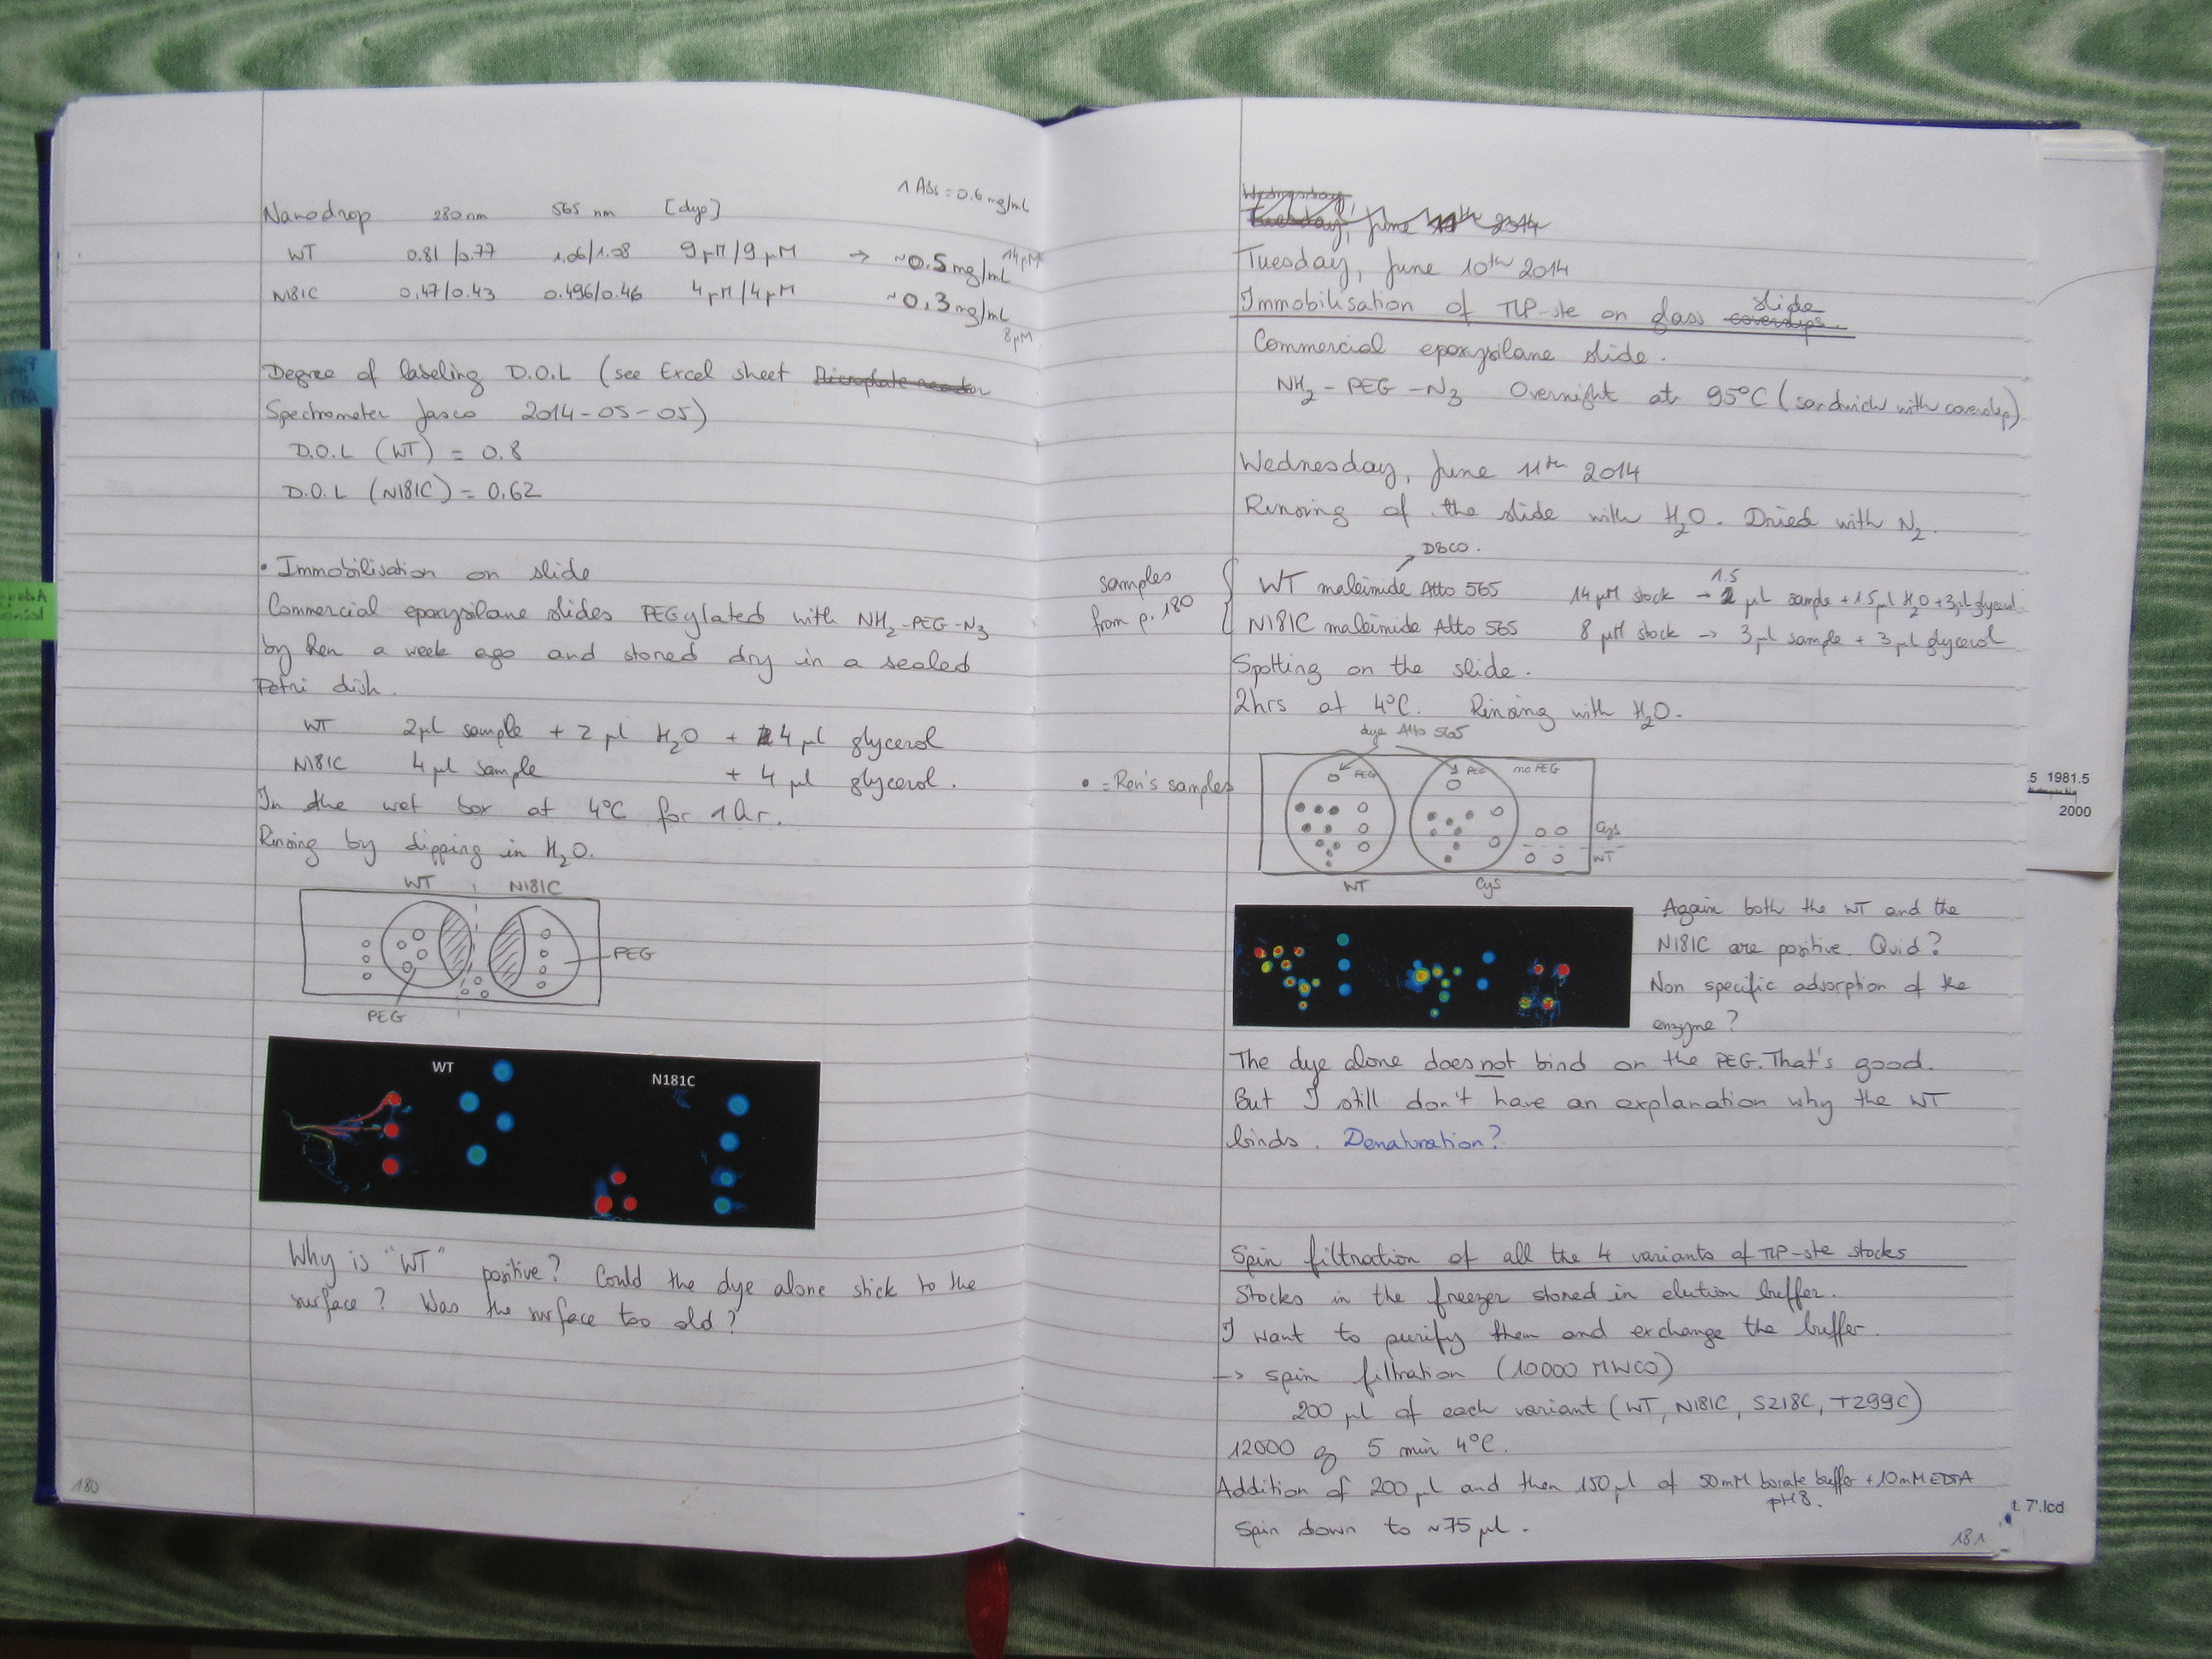 1 Abs = 0.6 mg/mL
Nanodrop 280 nm 565 nm [dye]
WT 0.81/0.77 1.06/1.08 9 µM/9 µM → ~0.5 mg/mL 14 µM
N181C 0.47/0.43 0.496/0.46 4 µM/4 µM ~0.3 mg/mL
8 µM
Degree of labeling D.O.L (see Excel sheet Microplate reader
Spectrometer Jasco 2014-05-05)
D.O.L (WT) = 0.8
D.O.L (N181C) = 0.62
• Immobilisation on slide
Commercial epoxysilane slides PEGylated with NH2-PEG-N3
by Ren a week ago and stored dry in a sealed
Petri dish.
WT 2µl sample + 2 µl H2O + 4 µl glycerol
N181C 4 µl sample + 4 µl glycerol.
In the wet box at 4°C for 1 hr.
Rinsing by dipping in H2O.
WT N181C
PEG
PEG
WT
N181C
Why is "WT" positive? Could the dye alone stick to the
surface? Was the surface too old?
180
Wednesday
Tuesday, June 11th 2014
Tuesday, June 10th 2014
Immobilisation of TLP-ste on glass coverslips. slide
Commercial epoxysilane slide.
NH2-PEG-N3 Overnight at 95°C (sandwich with coverslip)
Wednesday, June 11th 2014
Rinsing of the slide with H2O. Dried with N2.
DBCO.
samples from p.180
WT maleimide Atto 565 14 µM stock → 2 1.5 µl sample + 1.5 µl H2O + 3µl glycerol
N181C maleimide Atto 565 8 µM stock → 3 µl sample + 3 µl glycerol
Spotting on the slide.
2hrs at 4°C. Rinsing with H2O.
dye Atto 565
• = Ren's samples
PEG PEG no PEG
Cys
WT
WT Cys
Again both the WT and the
N181C are positive. Quid?
Non specific adsorption of the
enzyme?
The dye alone does not bind on the PEG. That's good.
But I still don't have an explanation why the WT
binds. Denaturation?
Spin filtration of all the 4 variants of TLP-ste stocks
Stocks in the freezer stored in elution buffer.
I want to purify them and exchange the buffer.
→ spin filtration (10000 MWCO)
200 µl of each variant (WT, N181C, S218C, T299C)
12000 g 5 min 4°C.
Addition of 200 µl and then 150 µl of 50 mM borate buffer + 10 mM EDTA
pH 8.
Spin down to ~75 µl.
181
5 1981.5
2000
t. 7'.lcd